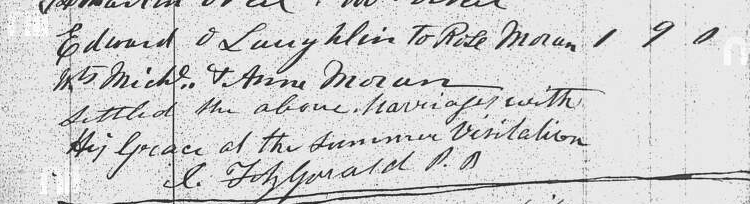 Edward O Laughlin to Rose Moran 1 9 0
Wts Michl. & Anne Moran
Settled the above Marriages with
His Grace at the Summer Visitation
FitzGerald P. P